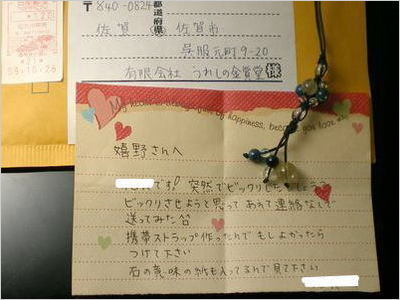 〒840-0824
都道府県
佐賀 佐賀市
呉服元町9-20
有限会社 うれしの金賞堂 様
09.10.26
My heart is
of happiness, because you love me
嬉野さんへ
です! 突然でビックリした
ビックリさせようと思って あえて連絡なしで
送ってみた
携帯ストラップ作ったんで もしよかったら
つけて下さい
石の意味の紙も入ってるんで見て下さい